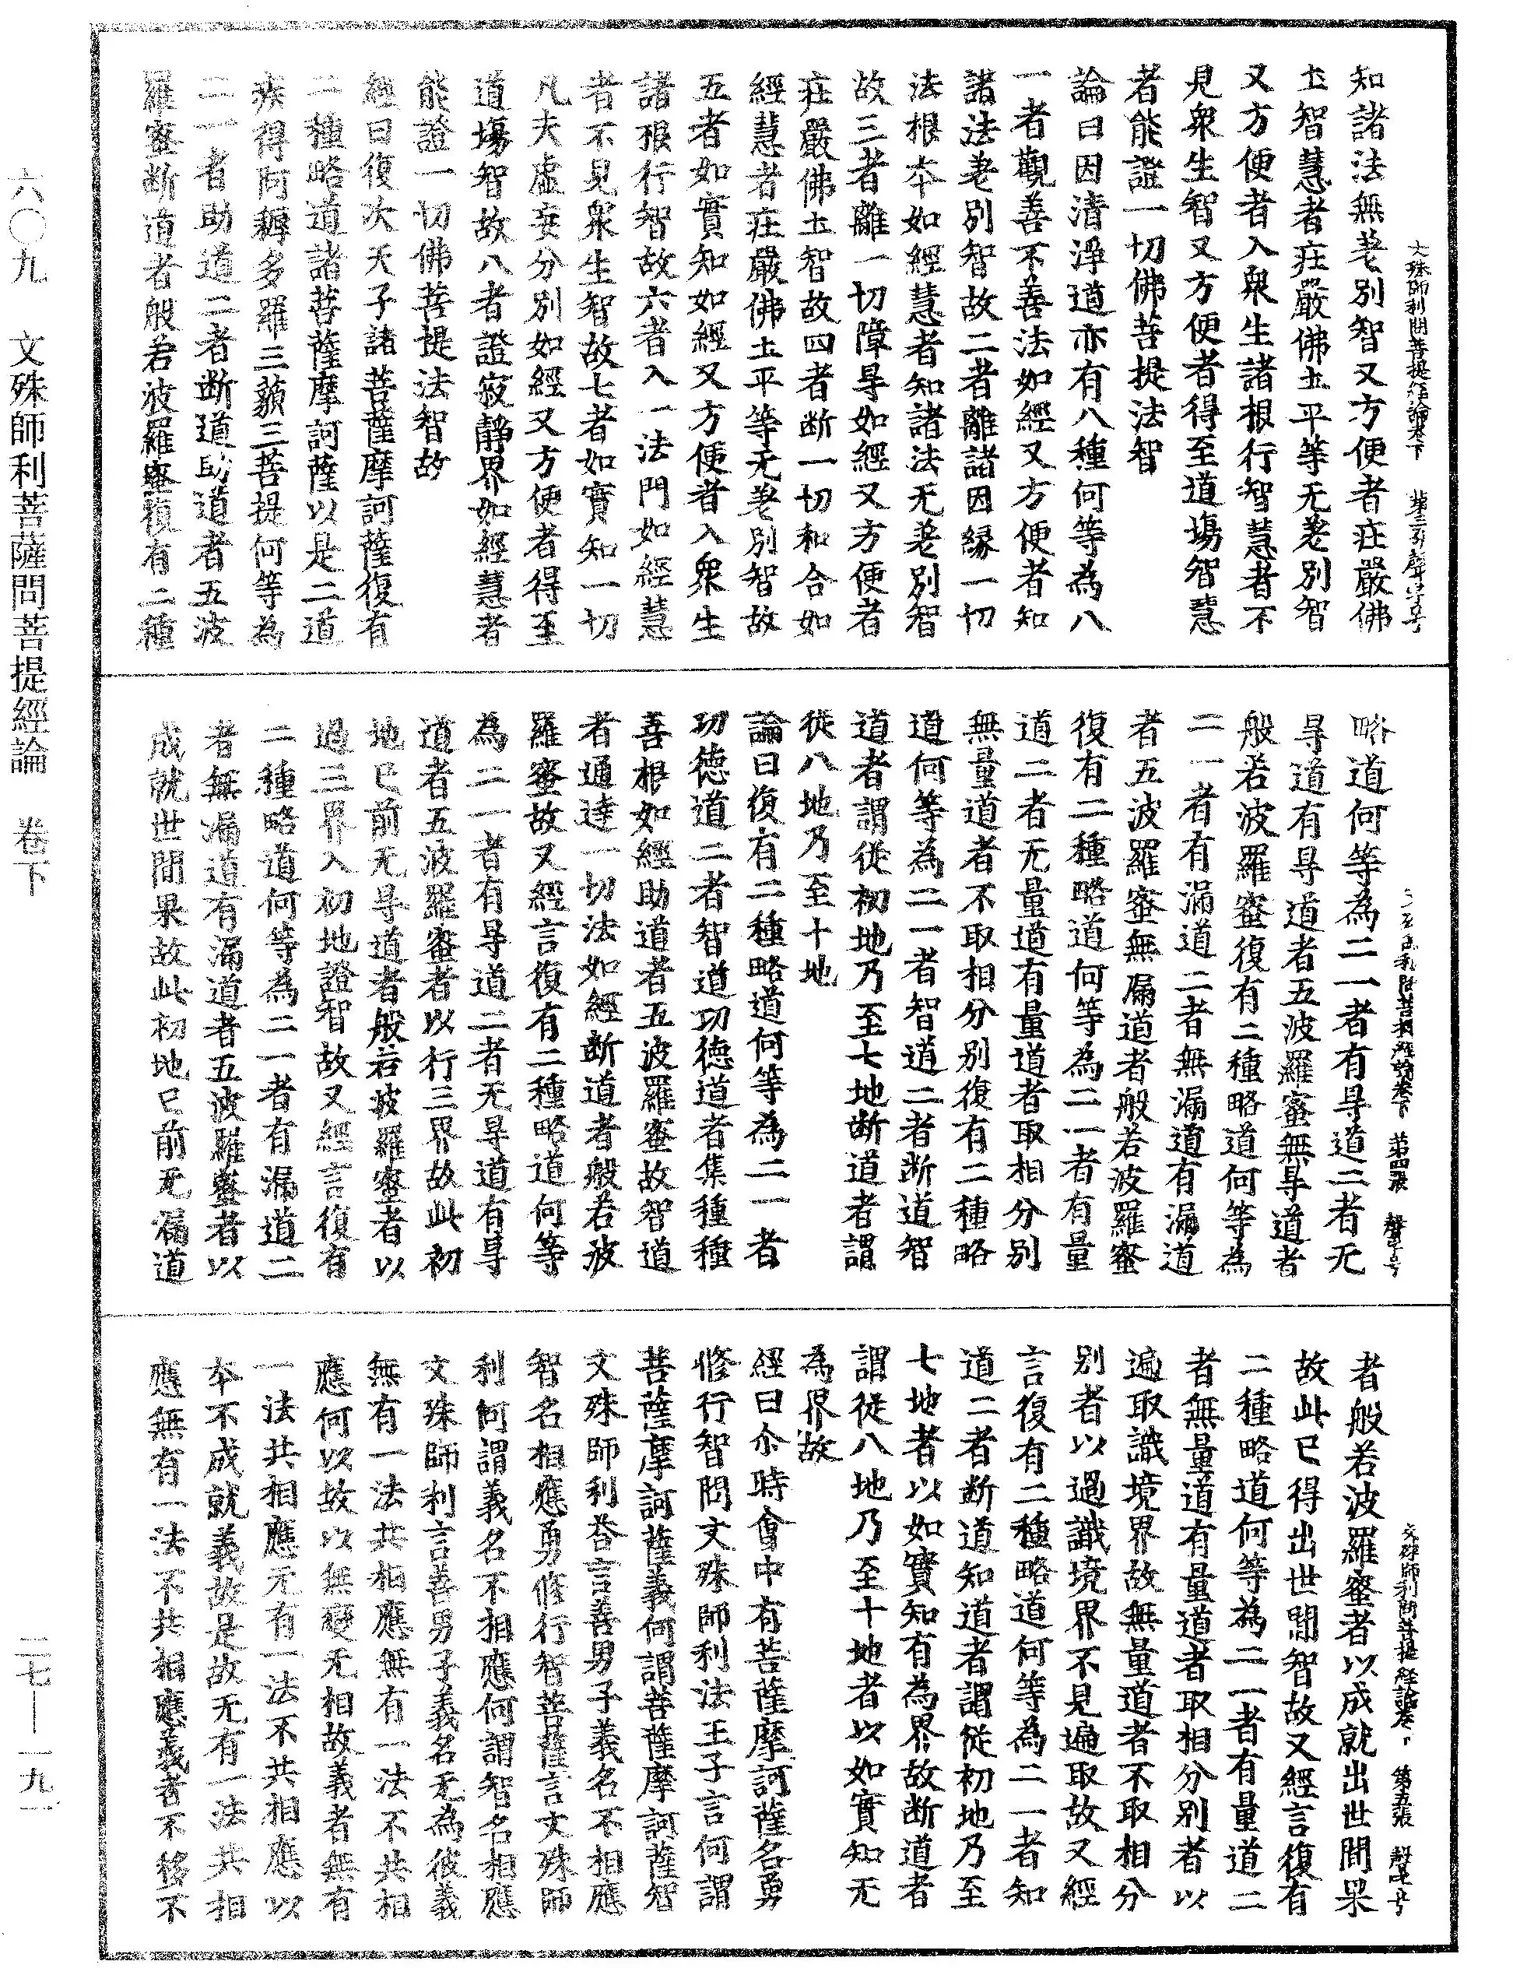 六〇九　文殊師利菩薩問菩提經論　卷下
二七—一九一
知諸法無差別智又方便者莊嚴佛
土智慧者莊嚴佛土平等无差別智
又方便者入衆生諸根行智慧者不
見衆生智又方便者得至道場智慧
者能證一切佛菩提法智
論曰因清淨道亦有八種何等為八
一者觀善不善法如經又方便者知
諸法差別智故二者離諸因緣一切
法根本如經慧者知諸法无差別智
故三者離一切障㝵如經又方便者
莊嚴佛土智故四者断一切和合如
經慧者莊嚴佛土平等无差別智故
五者如實知如經又方便者入衆生
諸根行智故六者入一法門如經慧
者不見衆生智故七者如實知一切
凡夫虛妄分別如經又方便者得至
道場智故八者證寂靜界如經慧者
能證一切佛菩提法智故
經曰復次天子諸菩薩摩訶薩復有
二種略道諸菩薩摩訶薩以是二道
疾得阿耨多羅三藐三菩提何等為
二一者助道二者断道助道者五波
羅蜜断道者般若波羅蜜復有二種
略道何等為二一者有㝵道二者无
㝵道有㝵道者五波羅蜜無㝵道者
般若波羅蜜復有二種略道何等為
二一者有漏道二者無漏道有漏道
者五波羅蜜無漏道者般若波羅蜜
復有二種略道何等為二一者有量
道二者无量道有量道者取相分別
無量道者不取相分別復有二種略
道何等為二一者智道二者断道智
道者謂從初地乃至七地断道者謂
從八地乃至十地
論曰復有二種略道何等為二一者
功德道二者智道功德道者集種種
善根如經助道者五波羅蜜故智道
者通達一切法如經断道者般若波
羅蜜故又經言復有二種略道何等
為二一者有㝵道二者无㝵道有㝵
道者五波羅蜜者以行三界故此初
地已前无㝵道者般若波羅蜜者以
過三界入初地證智故又經言復有
二種略道何等為二一者有漏道二
者無漏道有漏道者五波羅蜜者以
成就世間果故此初地已前无漏道
者般若波羅蜜者以成就出世間果
故此已得出世間智故又經言復有
二種略道何等為二一者有量道二
者無量道有量道者取相分別者以
遍取識境界故無量道者不取相分
別者以過識境界不見遍取故又經
言復有二種略道何等為二一者知
道二者断道知道者謂從初地乃至
七地者以如實知有為界故断道者
謂從八地乃至十地者以如實知无
為界故
經曰尒時會中有菩薩摩訶薩名勇
修行智問文殊師利法王子言何謂
菩薩摩訶薩義何謂菩薩摩訶薩智
文殊師利荅言善男子義名不相應
智名相應勇修行智菩薩言文殊師
利何謂義名不相應何謂智名相應
文殊師利言善男子義名无為彼義
無有一法共相應無有一法不共相
應何以故以無變无相故義者無有
一法共相應无有一法不共相應以
本不成就義故是故无有一法共相
應無有一法不共相應義者不移不